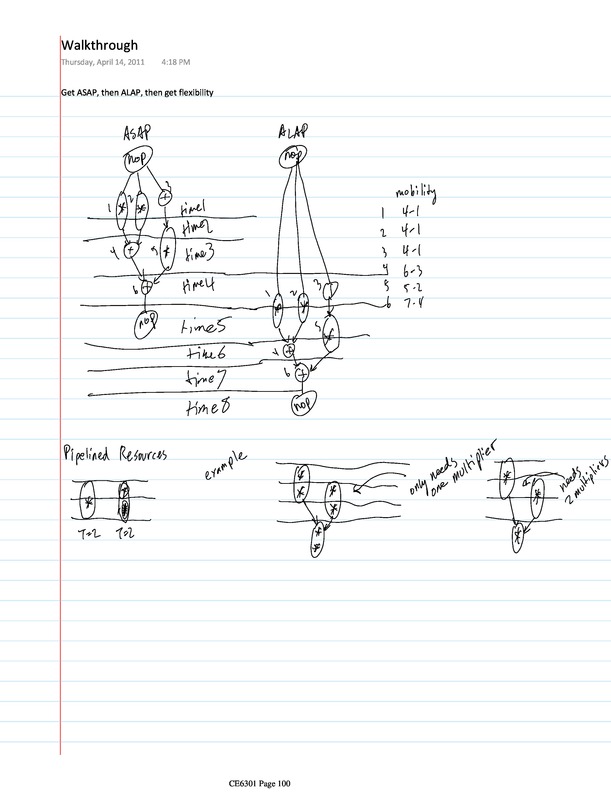 Walkthrough
Thursday, April 14, 2011 4:18 PM
Get ASAP, then ALAP, then get flexibility
ASAP ALAP
nop nop
mobility
1 4-1
2 4-1
3 4-1
4 6-3
5 5-2
6 7-4
1 * 2 * 3 + time1
time2
4 + 5 * time3
6 + time4
1 * 2 * 3
nop time5 5 *
4 + time6
6 + time7
nop time8
Pipelined Resources
example
only needs
one multiplier
needs
2 multipliers
* * *
* * * *
* * *
*
T=2 T=2
CE6301 Page 100